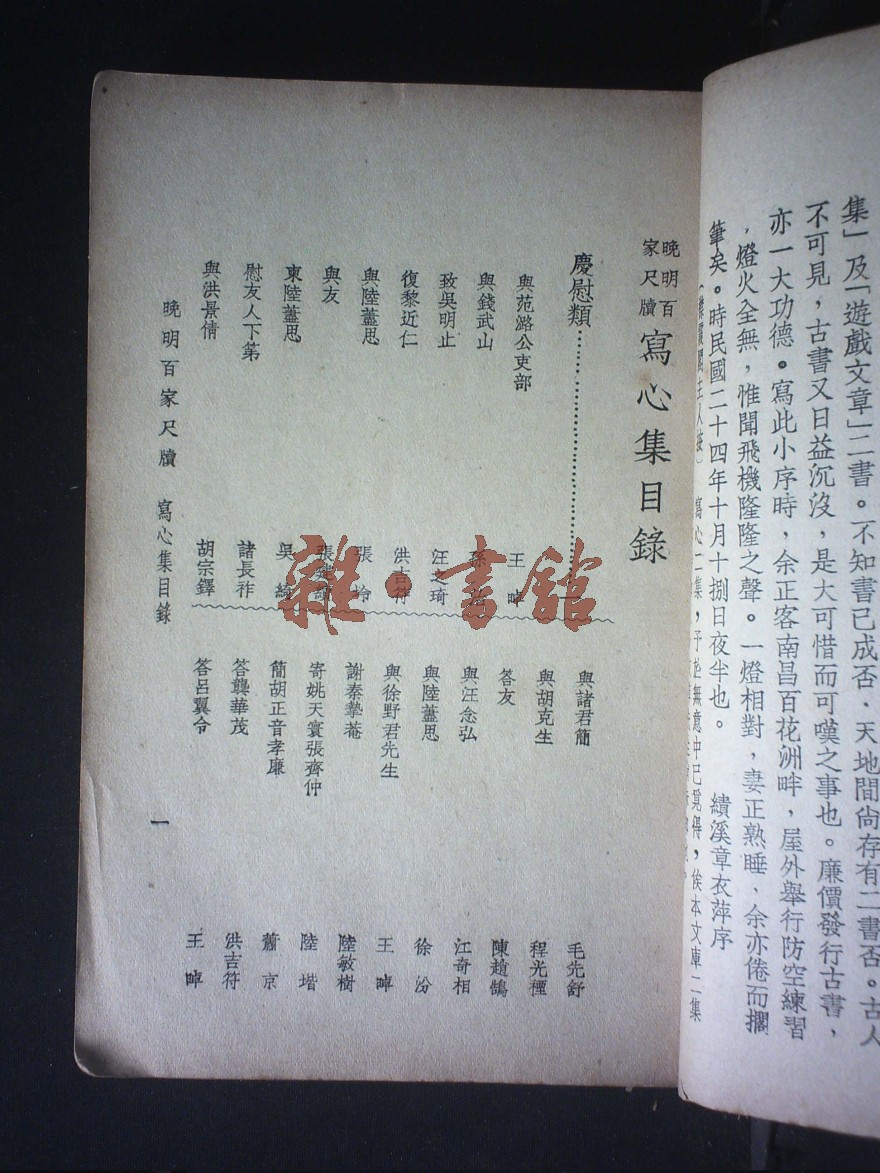 集」及「遊戲文章」二書。不知書已成否．天地間尙存有二書否。古人
不可見，古書又日益沉沒，是大可惜而可嘆之事也。廉價發行古書，
亦一大功德。寫此小序時，余正客南昌百花洲畔，屋外舉行防空練習
，燈火全無，惟聞飛機隆隆之聲。一燈相對，妻正熟睡、余亦倦而擱
筆矣。時民國二十四年十月十捌日夜半也。 績溪章衣萍序
主人 寫心二集，予於無意中已覓得，俟本文庫二集
晚明百家尺牘 寫心集目錄
慶慰類……………………一
與范潞公吏部 王晫
與錢武山 孫
致吳明止 汪之琦
復黎近仁 洪吉符
與陸藎思 張
與友 張
柬陸藎思 吳綺
慰友人下第 諸長祚
與洪景倩 胡宗鐸
與諸君簡 毛先舒
與胡克生 程光禋
答友 陳趙鵠
與汪念弘 江奇相
與陸藎思 徐汾
與徐野君先生 王晫
謝秦摯菴 陸敏樹
寄姚天寰張齊仲 陸堦
簡胡正音孝廉 蕭京
答龔華茂 洪吉符
答呂翼令 王晫
晚明百家尺牘 寫心集目錄
一
雜·書館